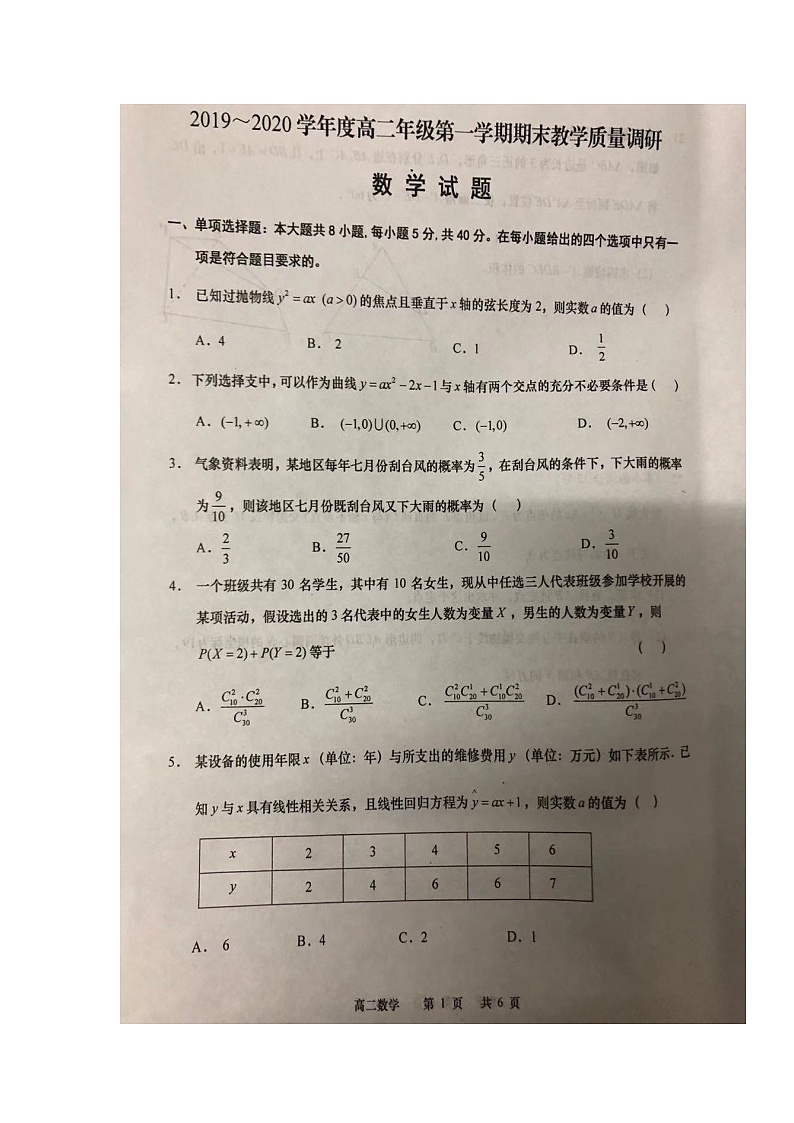 2019～2020 学年度高二年级第一学期期末教学质量调研
数 学 试 题
一、单项选择题：本大题共 8 小题, 每小题 5 分, 共 40 分。在每小题给出的四个选项中只有一
项是符合题目要求的。
1. 已知过抛物线 y² = ax (a > 0) 的焦点且垂直于 x 轴的弦长度为 2，则实数 a 的值为（ ）
A. 4 B. 2 C. 1 D. 1/2
2. 下列选择支中, 可以作为曲线 y = ax² − 2x − 1 与 x 轴有两个交点的充分不必要条件是（ ）
A. (−1, +∞) B. (−1,0)∪(0,+∞) C. (−1,0) D. (−2,+∞)
3. 气象资料表明，某地区每年七月份刮台风的概率为 3/5，在刮台风的条件下，下大雨的概率
为 9/10，则该地区七月份既刮台风又下大雨的概率为（ ）
A. 2/3 B. 27/50 C. 9/10 D. 3/10
4. 一个班级共有 30 名学生，其中有 10 名女生，现从中任选三人代表班级参加学校开展的
某项活动，假设选出的 3 名代表中的女生人数为变量 X，男生的人数为变量 Y，则
P(X = 2) + P(Y = 2) 等于 （ ）
A. (C₁₀² · C₂₀²)/C₃₀³ B. (C₁₀² + C₂₀²)/C₃₀³ C. (C₁₀²C₂₀¹ + C₁₀¹C₂₀²)/C₃₀³ D. (C₁₀² + C₂₀¹)·(C₁₀¹ + C₂₀²)/C₃₀³
5. 某设备的使用年限 x（单位：年）与所支出的维修费用 y（单位：万元）如下表所示. 已
知 y 与 x 具有线性相关关系，且线性回归方程为 ŷ = ax + 1，则实数 a 的值为（ ）
x 2 3 4 5 6
y 2 4 6 6 7
A. 6 B. 4 C. 2 D. 1
高二数学 第 1 页 共 6 页